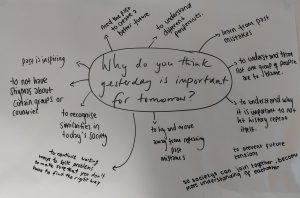 need the past
to create a
better future.
to understand
different
perspectives.
learn from past
mistakes
past is inspiring
to understand that
not one group of people
are to blame.
to not have
stigmas about
certain groups or
countries
Why do you think
yesterday is important
for tomorrow?
to understand why
it is important to not
let history repeat
itself.
to recognise
similarities in
today's society
to try and move
away from repeating
past
mistakes
to prevent future
tensions.
to continue trying
ways to solve problems
to make sure that you don't
have to find the right way
so societies can join together, become
more understanding of eachother